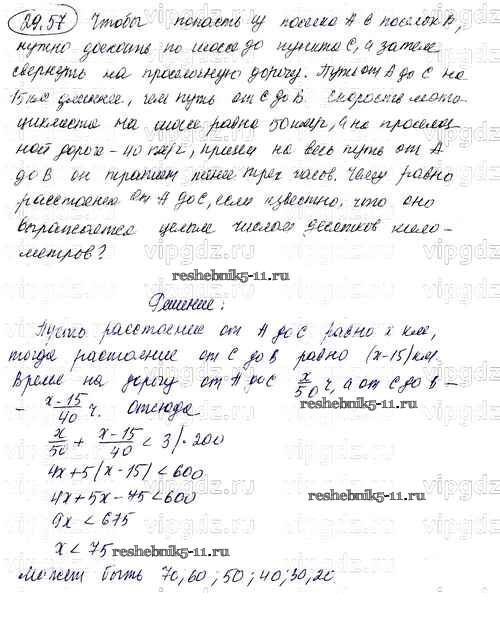 29.57 Чтобы попасть из поселка А в поселок В,
нужно доехать по шоссе до пункта С, а затем
свернуть на проселочную дорогу. Путь от А до С на
15 км длиннее, чем путь от С до В. Скорость мото-
циклиста на шоссе равна 50 км/ч, а на проселоч-
ной дороге - 40 км/ч, причем на весь путь от А
до В он тратит менее трех часов. Чему равно
расстояние от А до С, если известно, что оно
выражается целым числом десятков кило-
метров?
reshebnik5-11.ru
Решение:
Пусть расстояние от А до С равно x км,
тогда растояние от С до В равно (x-15) км.
Время на дорогу от А до С x/50 ч, а от С до В -
- x-15/40 ч. Отсюда
x/50 + x-15/40 < 3 | · 200
4x+5(x-15)<600
4x+5x-75<600
9x < 675
x < 75
reshebnik5-11.ru
Может быть 70, 60; 50; 40; 30, 20.